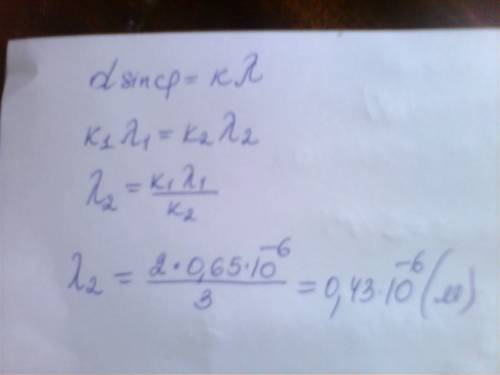 d sin φ = kλ
k₁ λ₁ = k₂ λ₂
λ₂ = k₁ λ₁ / k₂
λ₂ = 2 · 0,65 · 10⁻⁶ / 3 = 0,43 · 10⁻⁶ (м)